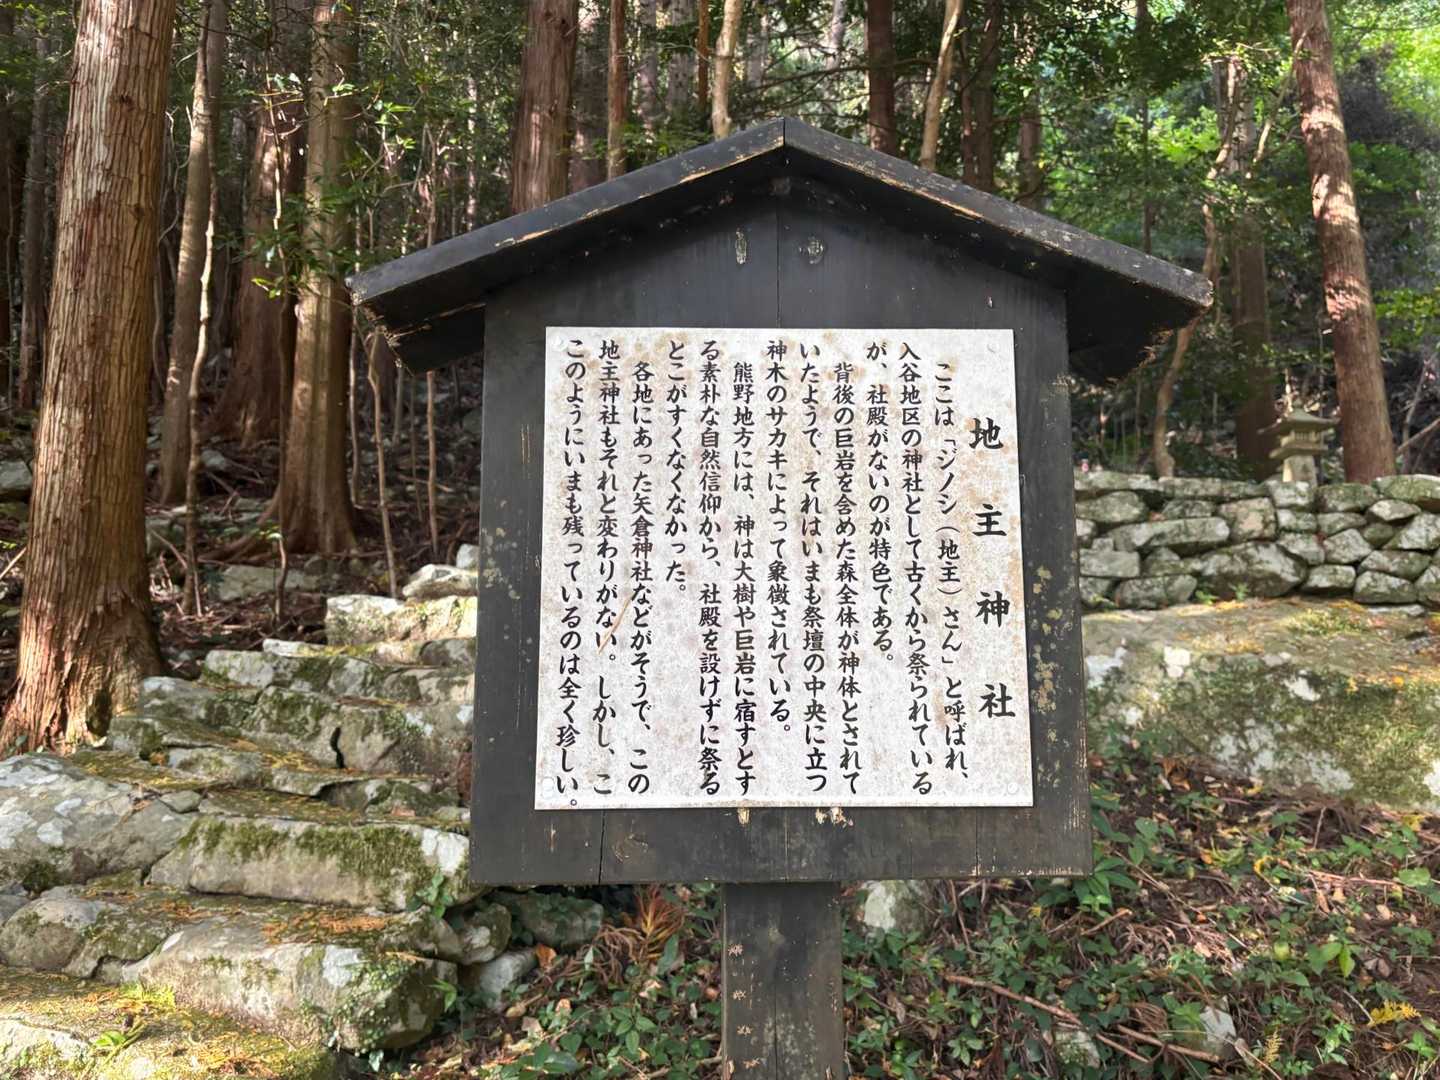 地主神社
ここは「ジノシ（地主）さん」と呼ばれ、
入谷地区の神社として古くから祭られている
が、社殿がないのが特色である。
背後の巨岩を含めた森全体が神体とされて
いたようで、それはいまも祭壇の中央に立つ
神木のサカキによって象徴されている。
熊野地方には、神は大樹や巨岩に宿すとす
る素朴な自然信仰から、社殿を設けずに祭る
とこがすくなくなかった。
各地にあった矢倉神社などがそうで、この
地主神社もそれと変わりがない。しかし、こ
このようにいまも残っているのは全く珍しい。